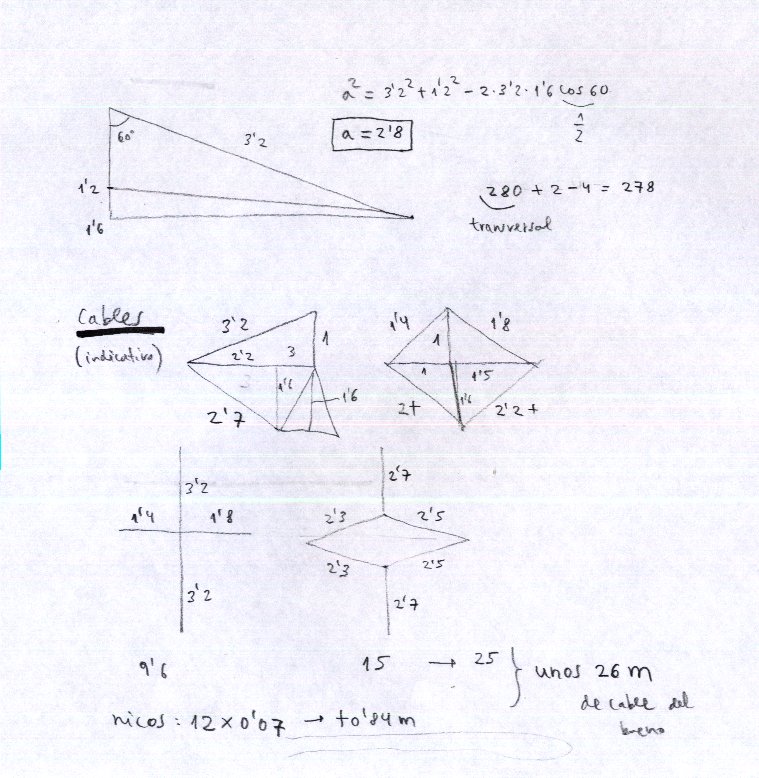 a² = 3'2² + 1'2² - 2·3'2·1'6 cos 60
1/2
a = 2'8
60°
3'2
1'2
1'6
280 + 2 - 4 = 278
transversal
Cables
(indicativo)
3'2
1
2'2
3
3
1'6
1'6
2'7
1'4
1'8
1
1
1'5
1'6
2+
2'2+
3'2
1'4
1'8
3'2
2'7
2'3
2'5
2'3
2'5
2'7
9'6
15 → 25 } unos 26 m
de cable del
bueno
nicos : 12 × 0'07 → +0'84 m